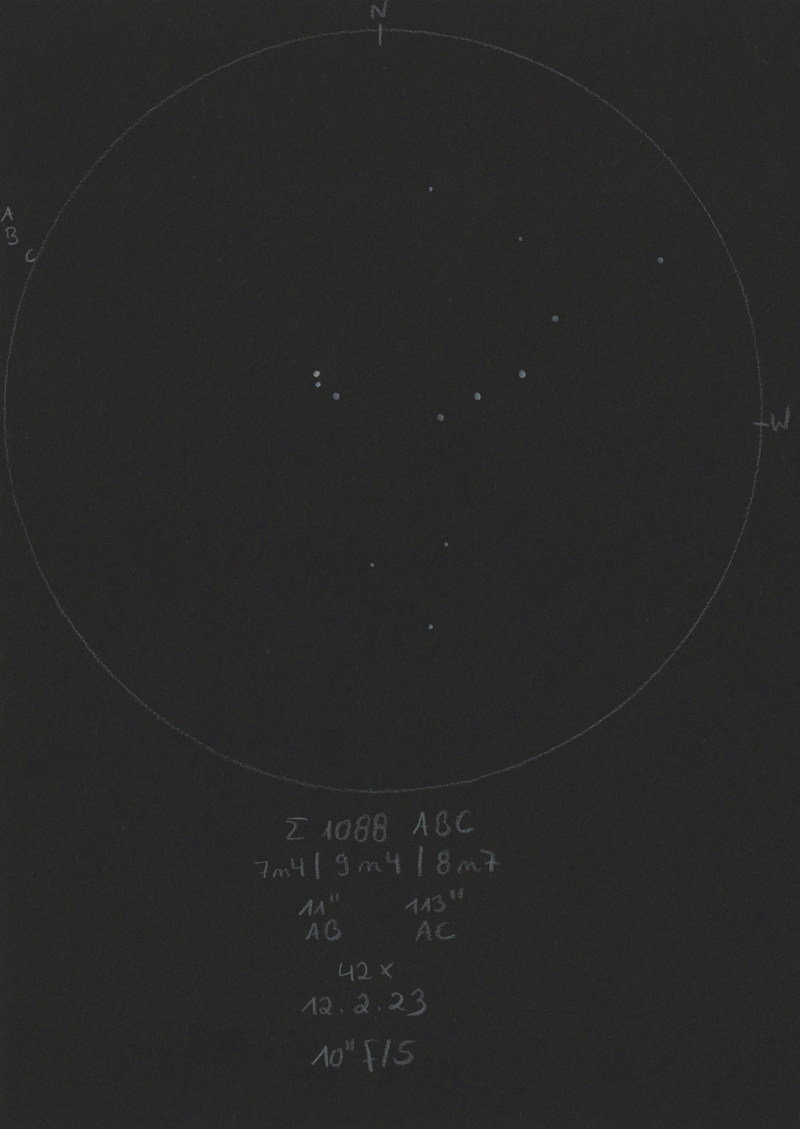 N
A
B
C
W
Σ 1088 ABC
7m4 | 9m4 | 8m7
11" 113"
AB AC
42x
12.2.23
10" f/5